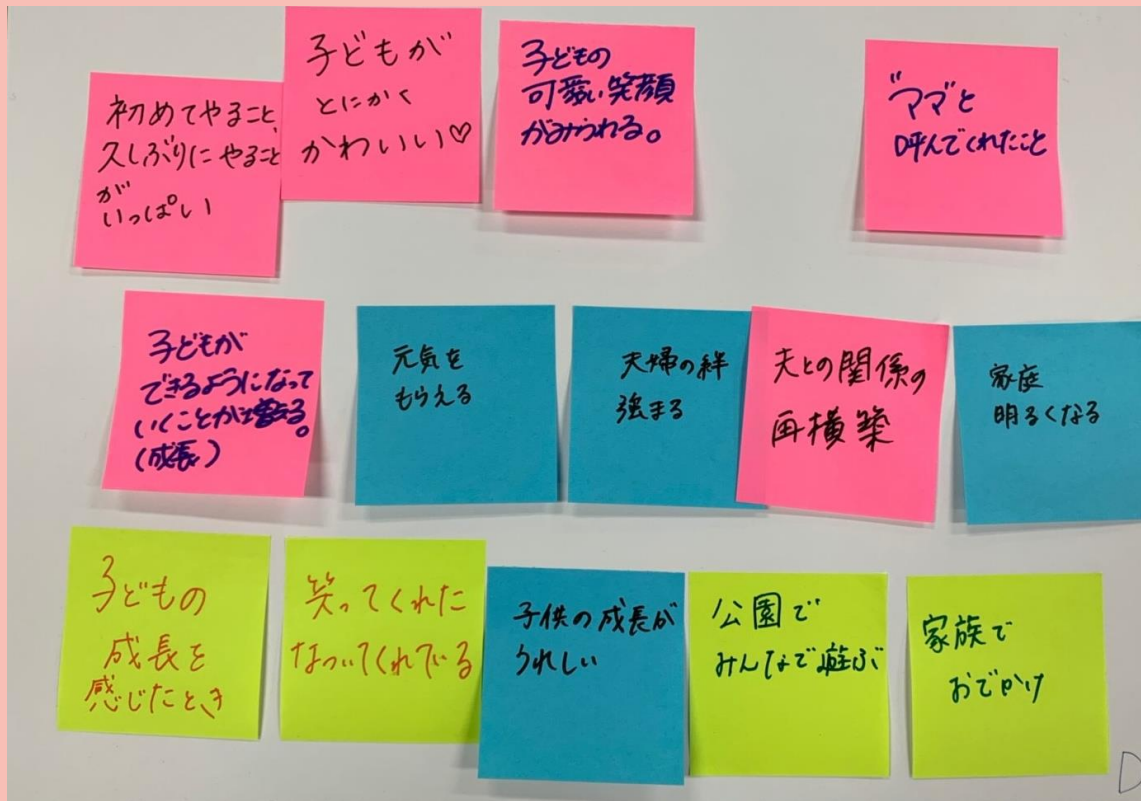 初めてやること、
久しぶりにやること
が
いっぱい
子どもが
とにかく
かわいい♡
子どもの
可愛い笑顔
がみられる。
"ママ"と
呼んでくれたこと
子どもが
できるようになって
いくことが増える。
(成長)
元気を
もらえる
夫婦の絆
強まる
夫との関係の
再構築
家庭
明るくなる
子どもの
成長を
感じたとき
笑ってくれた
なついてくれている
子供の成長が
うれしい
公園で
みんなで遊ぶ
家族で
おでかけ
D